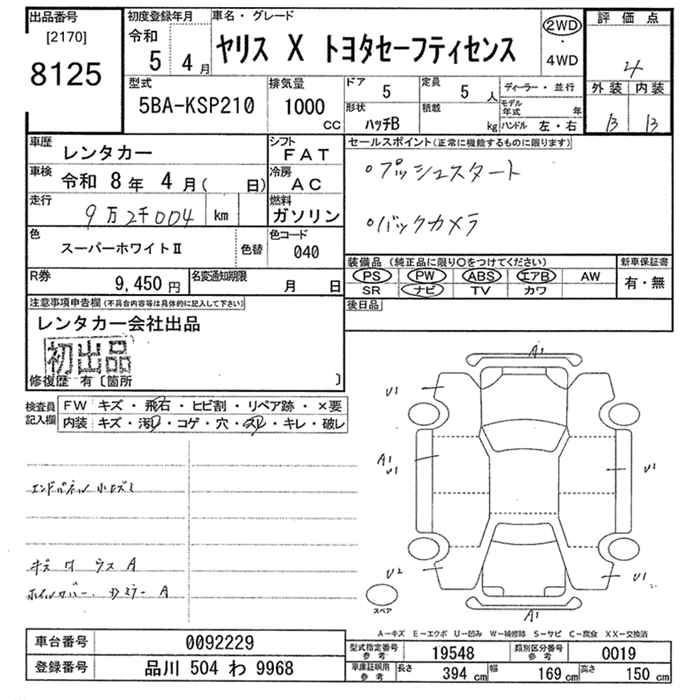 出品番号
[2170]
8125
初度登録年月
令和
5 4 月
車名・グレード
ヤリス X トヨタセーフティセンス
2WD
・
4WD
評価点
4
外装 内装
B B
型式
5BA-KSP210
排気量
1000
cc
ドア
5
定員
5 人
形状
ハッチB
積載
kg
ディーラー・並行
モデル年式 年
ハンドル 左・右
車歴
レンタカー
シフト
FAT
車検
令和 8 年 4 月( 日)
冷房
AC
走行
9万2千004 km
燃料
ガソリン
色
スーパーホワイトⅡ
色替
色コード
040
R券
9,450 円
名変通知期限
月 日
セールスポイント(正常に機能するものに限ります)
・プッシュスタート
・バックカメラ
装備品(純正品に限り○をつけてください)
PS PW ABS エアB AW
SR ナビ TV カワ
新車保証書
有・無
後日品
注意事項申告欄(不具合内容等は具体的に記入して下さい)
レンタカー会社出品
初出品
修復歴 有〔箇所 〕
検査員記入欄
FW キズ・飛石・ヒビ割・リペア跡・×要
内装 キズ・汚れ・コゲ・穴・スレ・キレ・破レ
キズ ワ ウス A
A1
U1
U1
A1
U1
U1
U2
U1
A1
スペア
A-キズ E-エクボ U-凹み W-補修跡 S-サビ C-腐食 XX-交換済
車台番号 0092229
登録番号 品川 504 わ 9968
型式指定番号参考 19548
類別区分番号参考 0019
車庫証明用参考
長さ 394 cm 幅 169 cm 高さ 150 cm